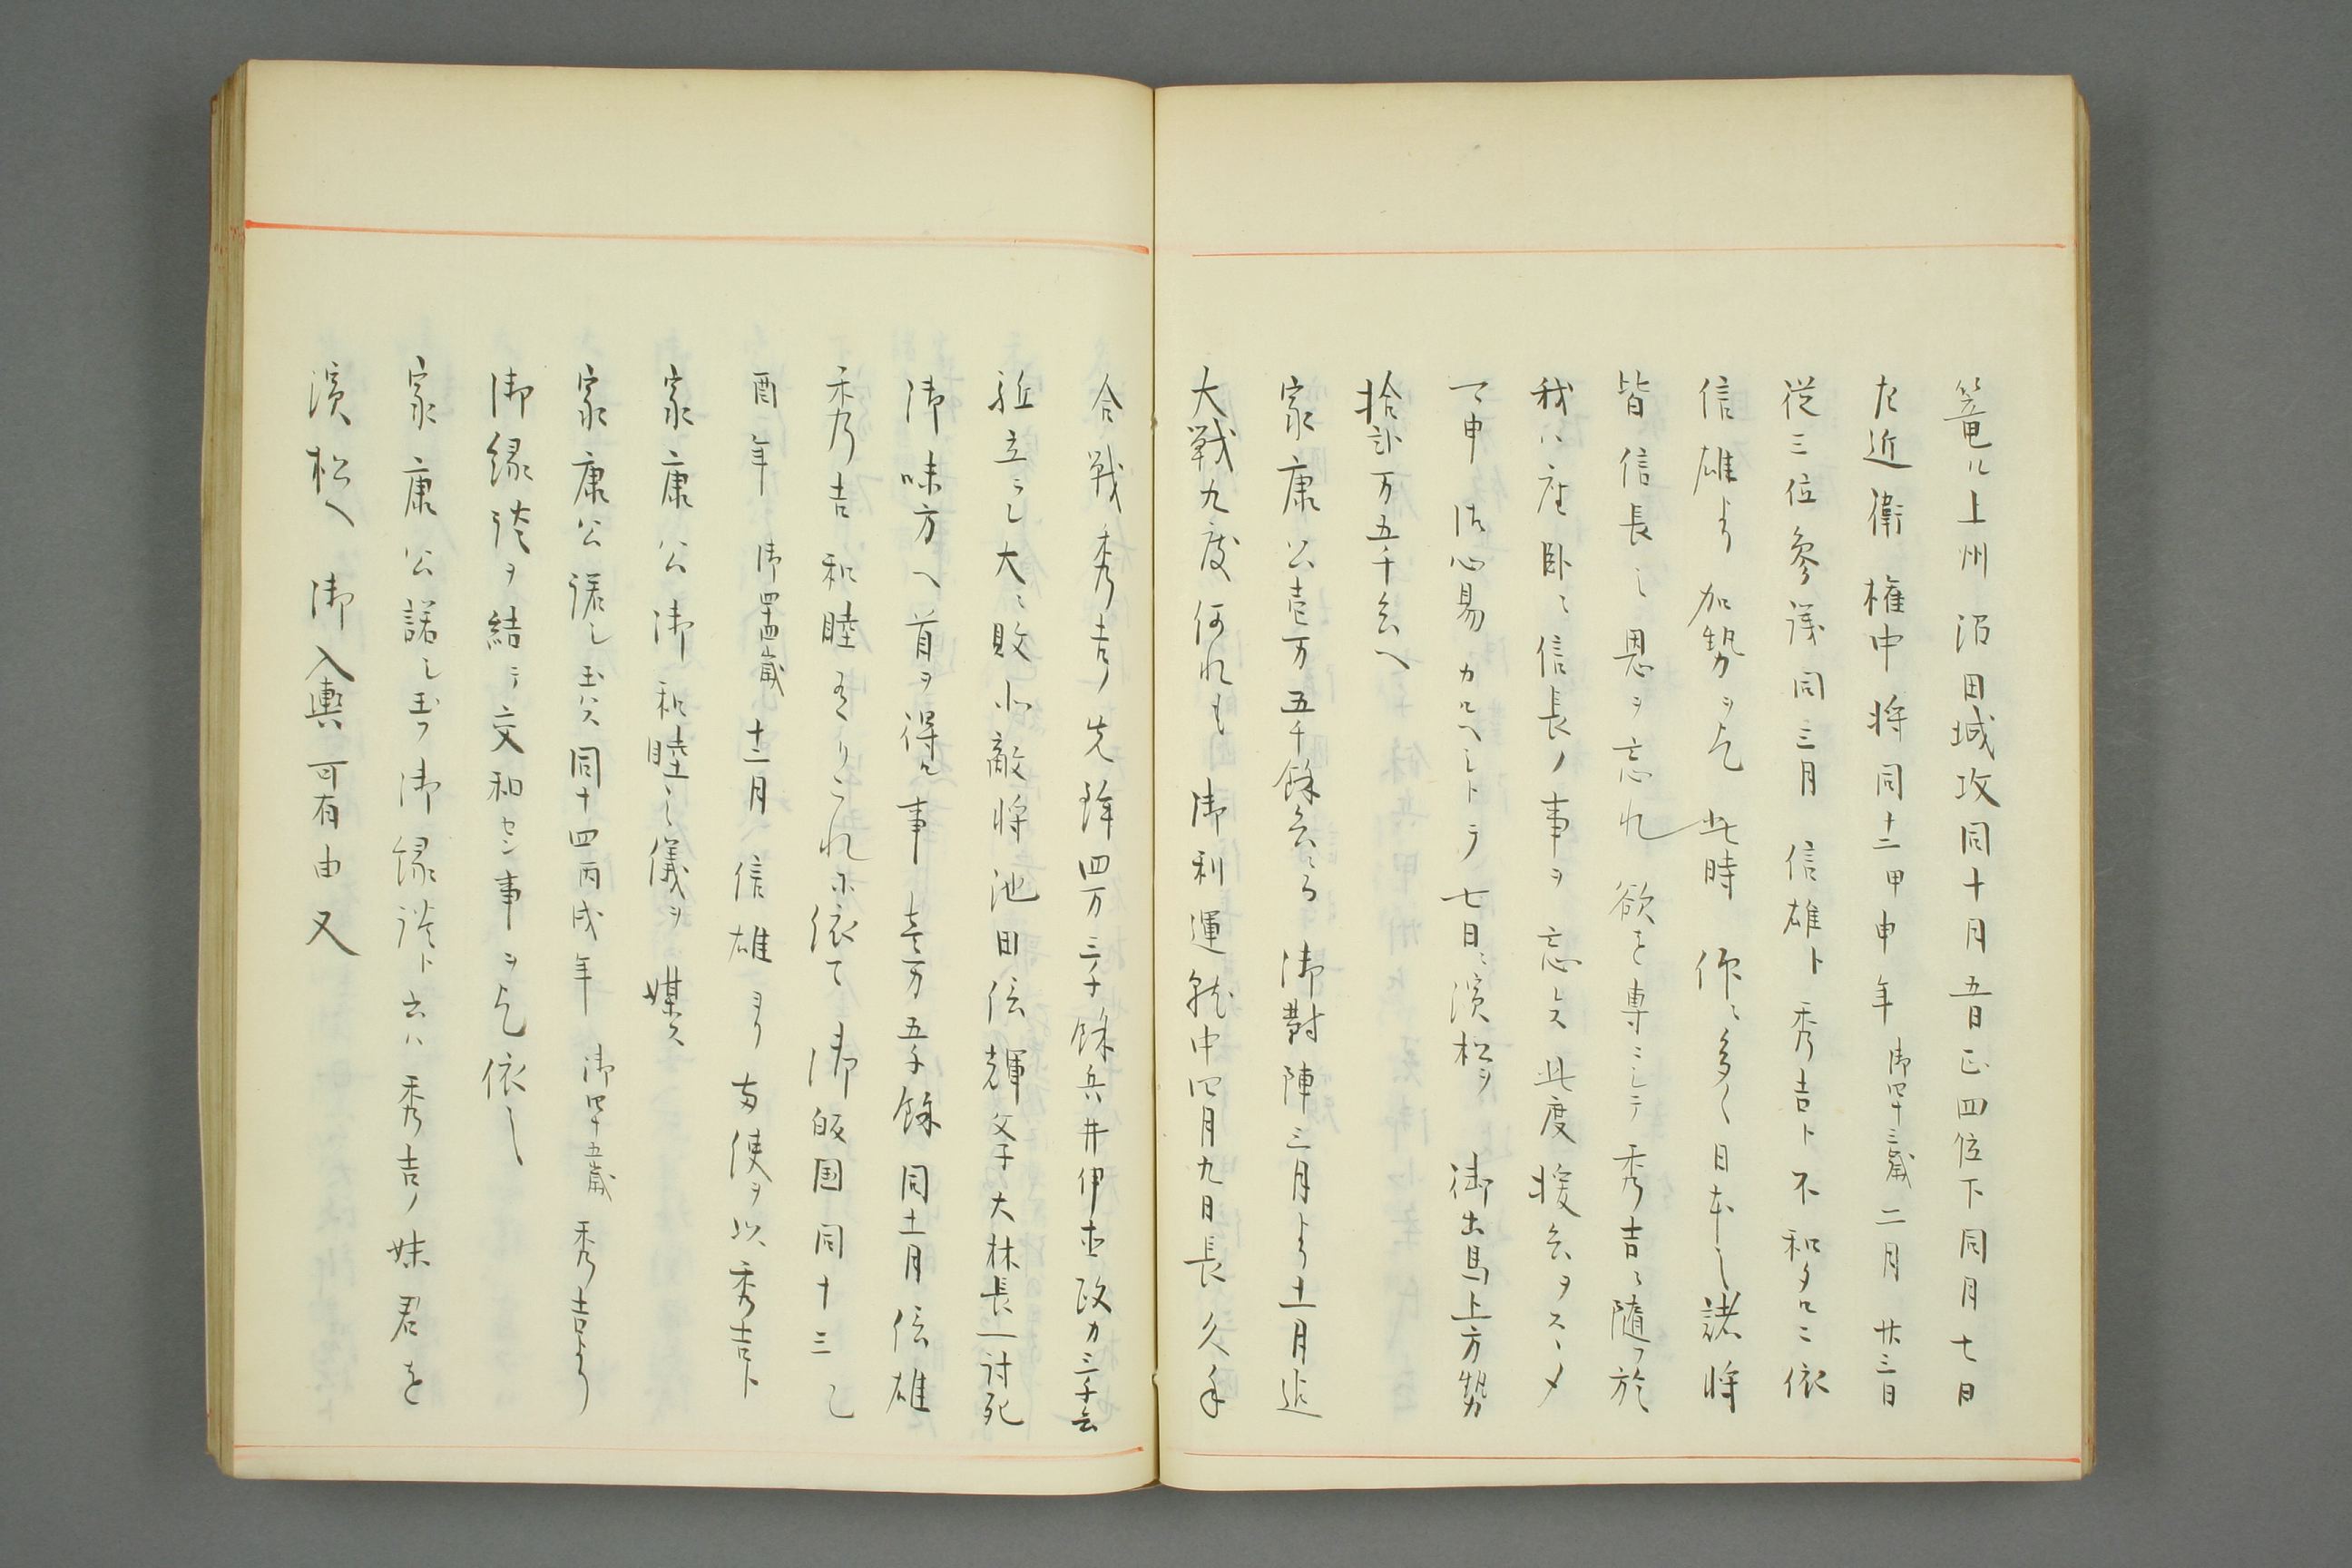 篭ル上州沼田城攻同十月五日正四位下同月七日
左近衛権中将同十二甲申年御四十三歳二月廿三日
従三位参議同三月信雄ト秀吉ト不和タルニ依
信雄より加勢ヲ乞此時作ニ多ク日本之諸将
皆信長之恩ヲ忘れ欲を専ニシテ秀吉ニ随フ於
我ハ座臥ニ信長ノ事ヲ忘レス此度援兵ヲスヽメ
可申御心易カルヘシトテ七日ニ濱松ヲ御出馬上方勢
拾弐万五千兵へ
家康公壱万五千餘兵ニ而御對陣三月より十一月迄
大戦九度何れも御利運就中四月九日長久手
合戦秀吉先鋒四万三千餘兵井伊直政カ三千兵
驅立ラレ大ニ敗北敵将池田信輝父子大林長一討死
御味方へ首ヲ得ル事壱万五千餘同十一月信雄
秀吉和睦有りこれニ依て御皈国同十三乙
酉年御四十四歳十二月信雄より両使ヲ以秀吉ト
家康公御和睦之儀ヲ媒ス
家康公諾し玉ハス同十四丙戌年御四十五歳秀吉より
御縁談ヲ結テ交和セン事ヲ乞依之
家康公諾し玉フ御縁談ト云ハ秀吉ノ妹君を
濱松へ御入輿可有由又